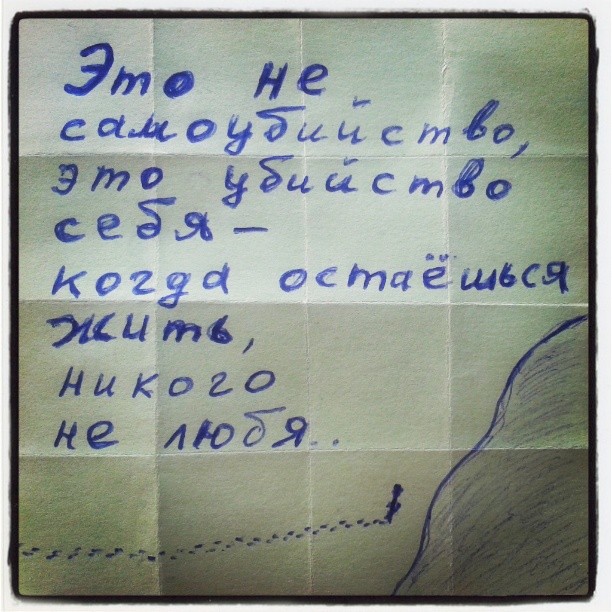 Это не
самоубийство,
это убийство
себя –
когда остаёшься
жить,
никого
не любя..